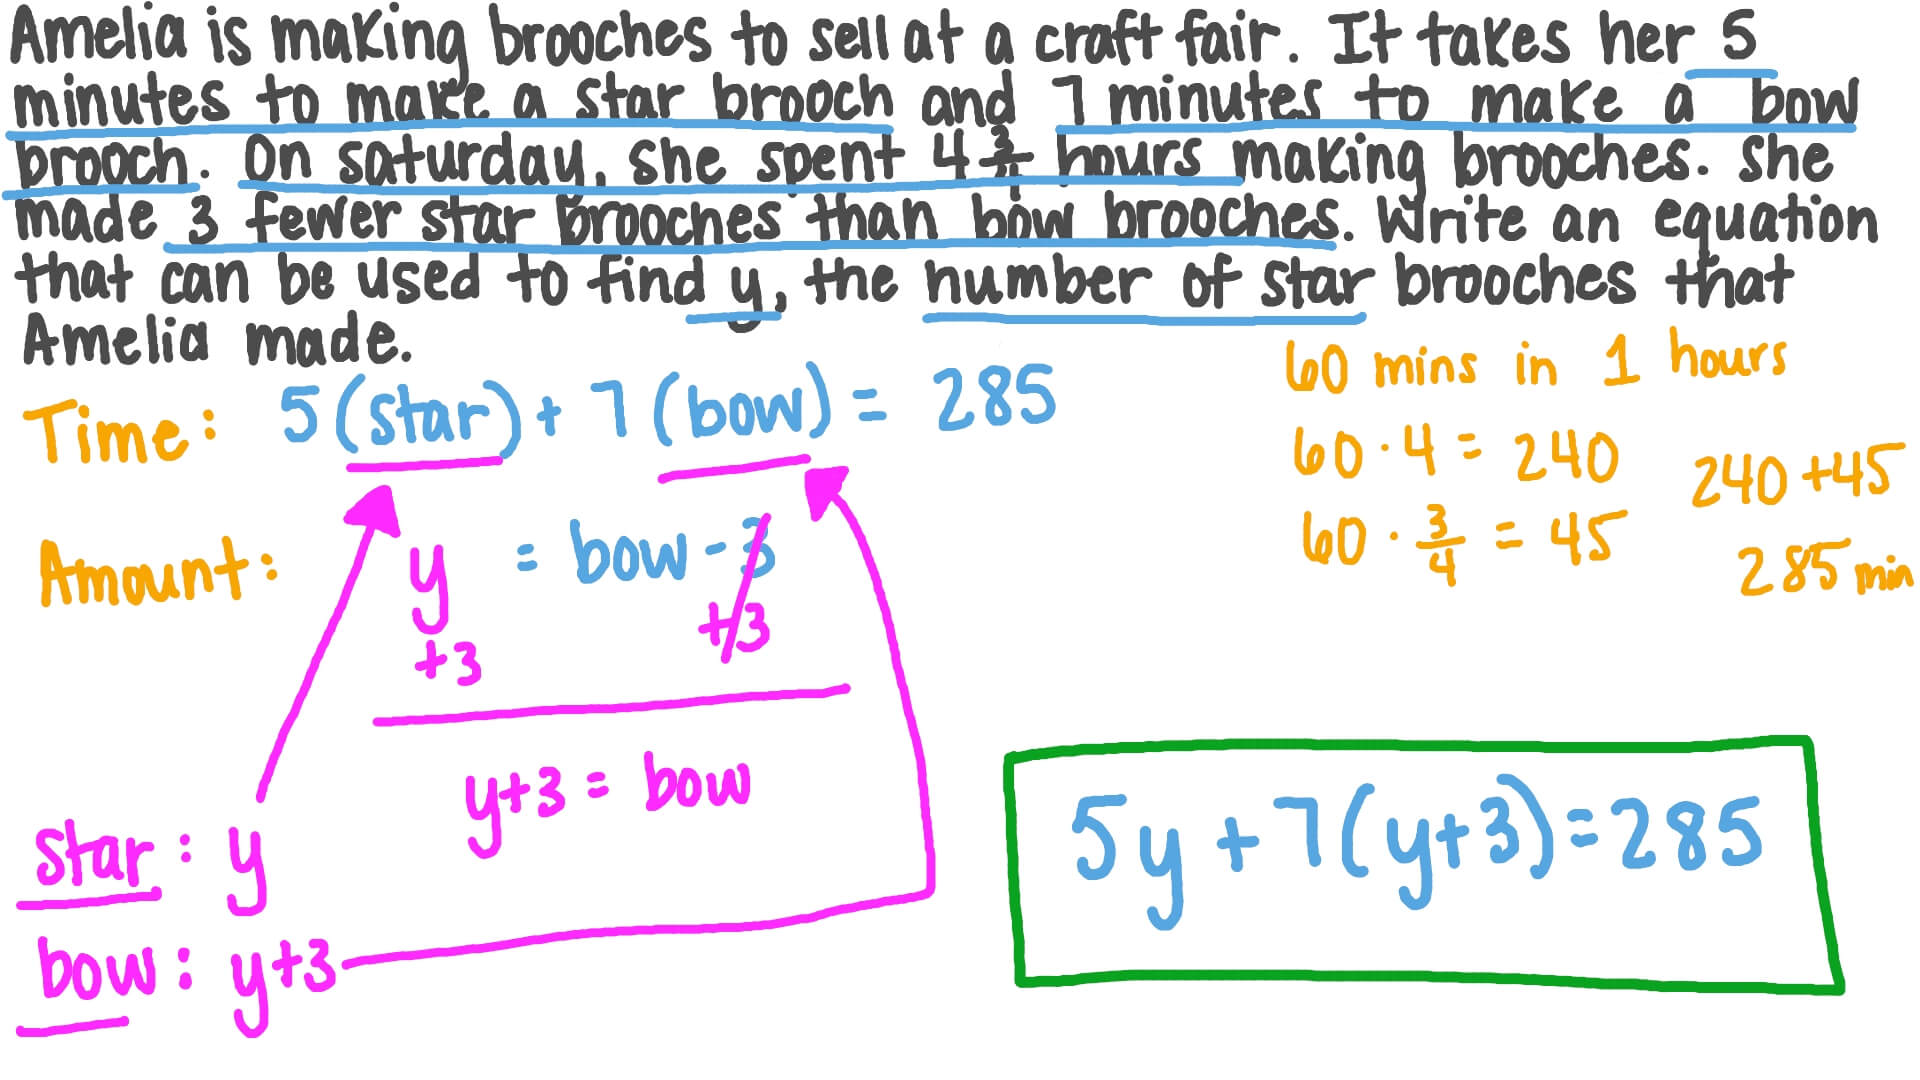 Amelia is making brooches to sell at a craft fair. It takes her 5
minutes to make a star brooch and 7 minutes to make a bow
brooch. On saturday, she spent 4 3/4 hours making brooches. She
made 3 fewer star brooches than bow brooches. Write an equation
that can be used to find y, the number of star brooches that
Amelia made.
Time: 5(star) + 7(bow) = 285
60 mins in 1 hours
60 · 4 = 240
60 · 3/4 = 45
240 +45
285 min
Amount: y = bow - 3
+3 +3
y+3 = bow
star : y
bow : y+3
5y + 7(y+3) = 285